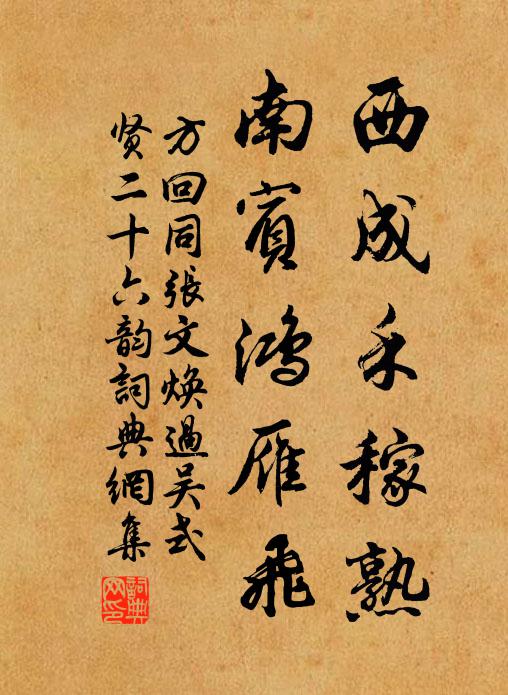 西成禾稼熟
南賓鴻雁飛
方回同張文焕過吴式
贤二十六韵詞典網集
詞典網印